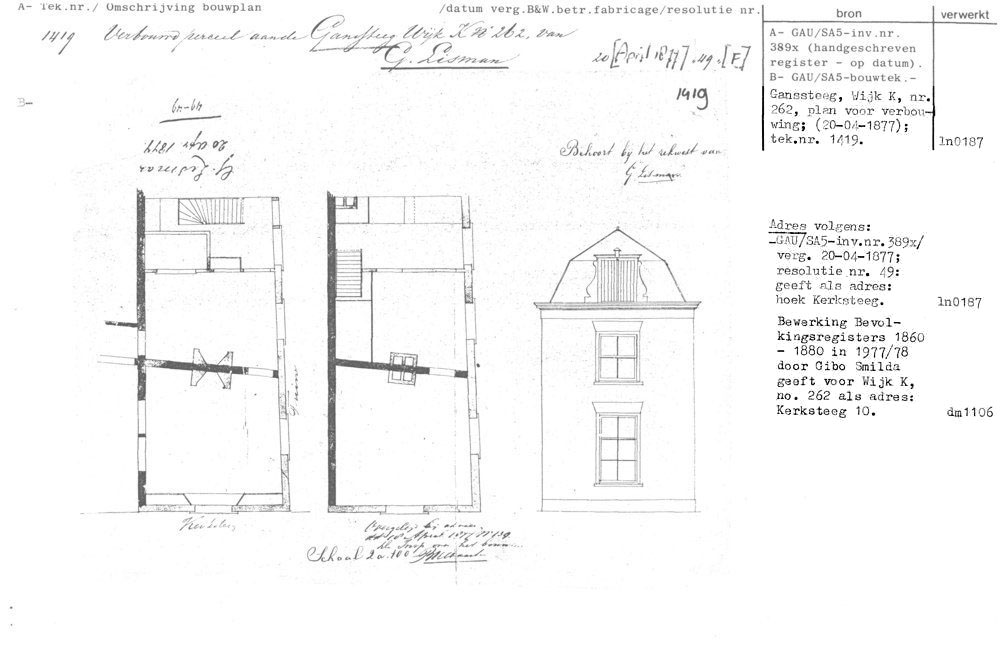 A- Tek.nr./ Omschrijving bouwplan /datum verg.B&W.betr.fabricage/resolutie nr.
1419 Verbouwd perceel aan de Ganssteeg Wijk K No 262. van
G. Lisman 20 [April 1877] . 49 . [F]
B-
49-49
20 Apr 1877
G. Lisman
1419
Behoort bij het rekwest van
G Lisman
Schaal 2 a. 100
bron
verwerkt
A- GAU/SA5-inv.nr.
389x (handgeschreven
register - op datum).
B- GAU/SA5-bouwtek.-
Ganssteeg, Wijk K, nr.
262, plan voor verbou-
wing; (20-04-1877);
tek.nr. 1419. ln0187
Adres volgens:
GAU/SA5-inv.nr. 389x/
verg. 20-04-1877;
resolutie nr. 49:
geeft als adres:
hoek Kerksteeg. ln0187
Bewerking Bevol-
kingsregisters 1860
- 1880 in 1977/78
door Gibo Smilda
geeft voor Wijk K,
no. 262 als adres:
Kerksteeg 10. dm1106